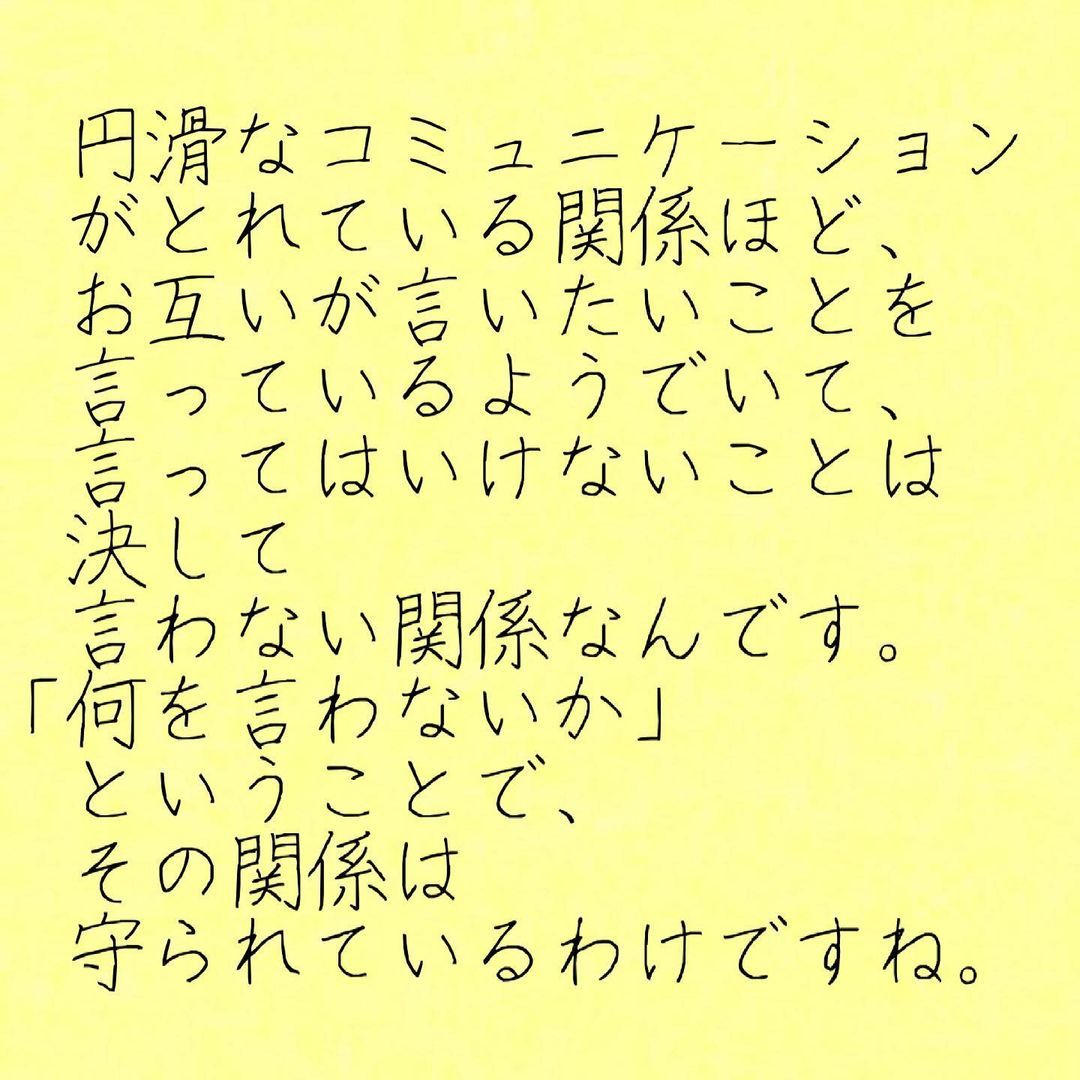 円滑なコミュニケーション
がとれている関係ほど、
お互いが言いたいことを
言っているようでいて、
言ってはいけないことは
決して
言わない関係なんです。
「何を言わないか」
ということで、
その関係は
守られているわけですね。